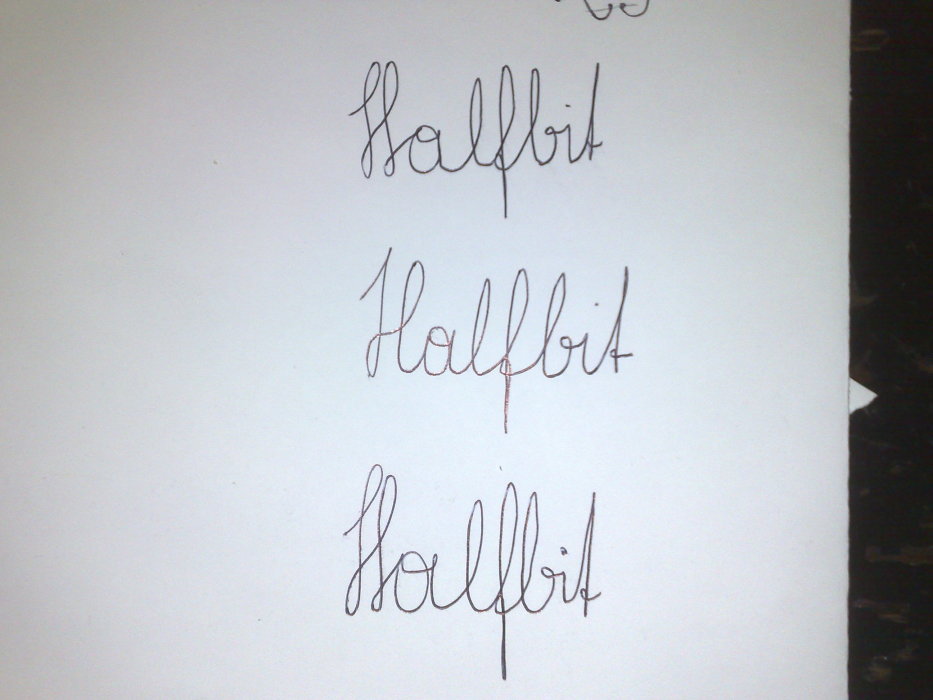 Halfbit
Halfbit
Halfbit